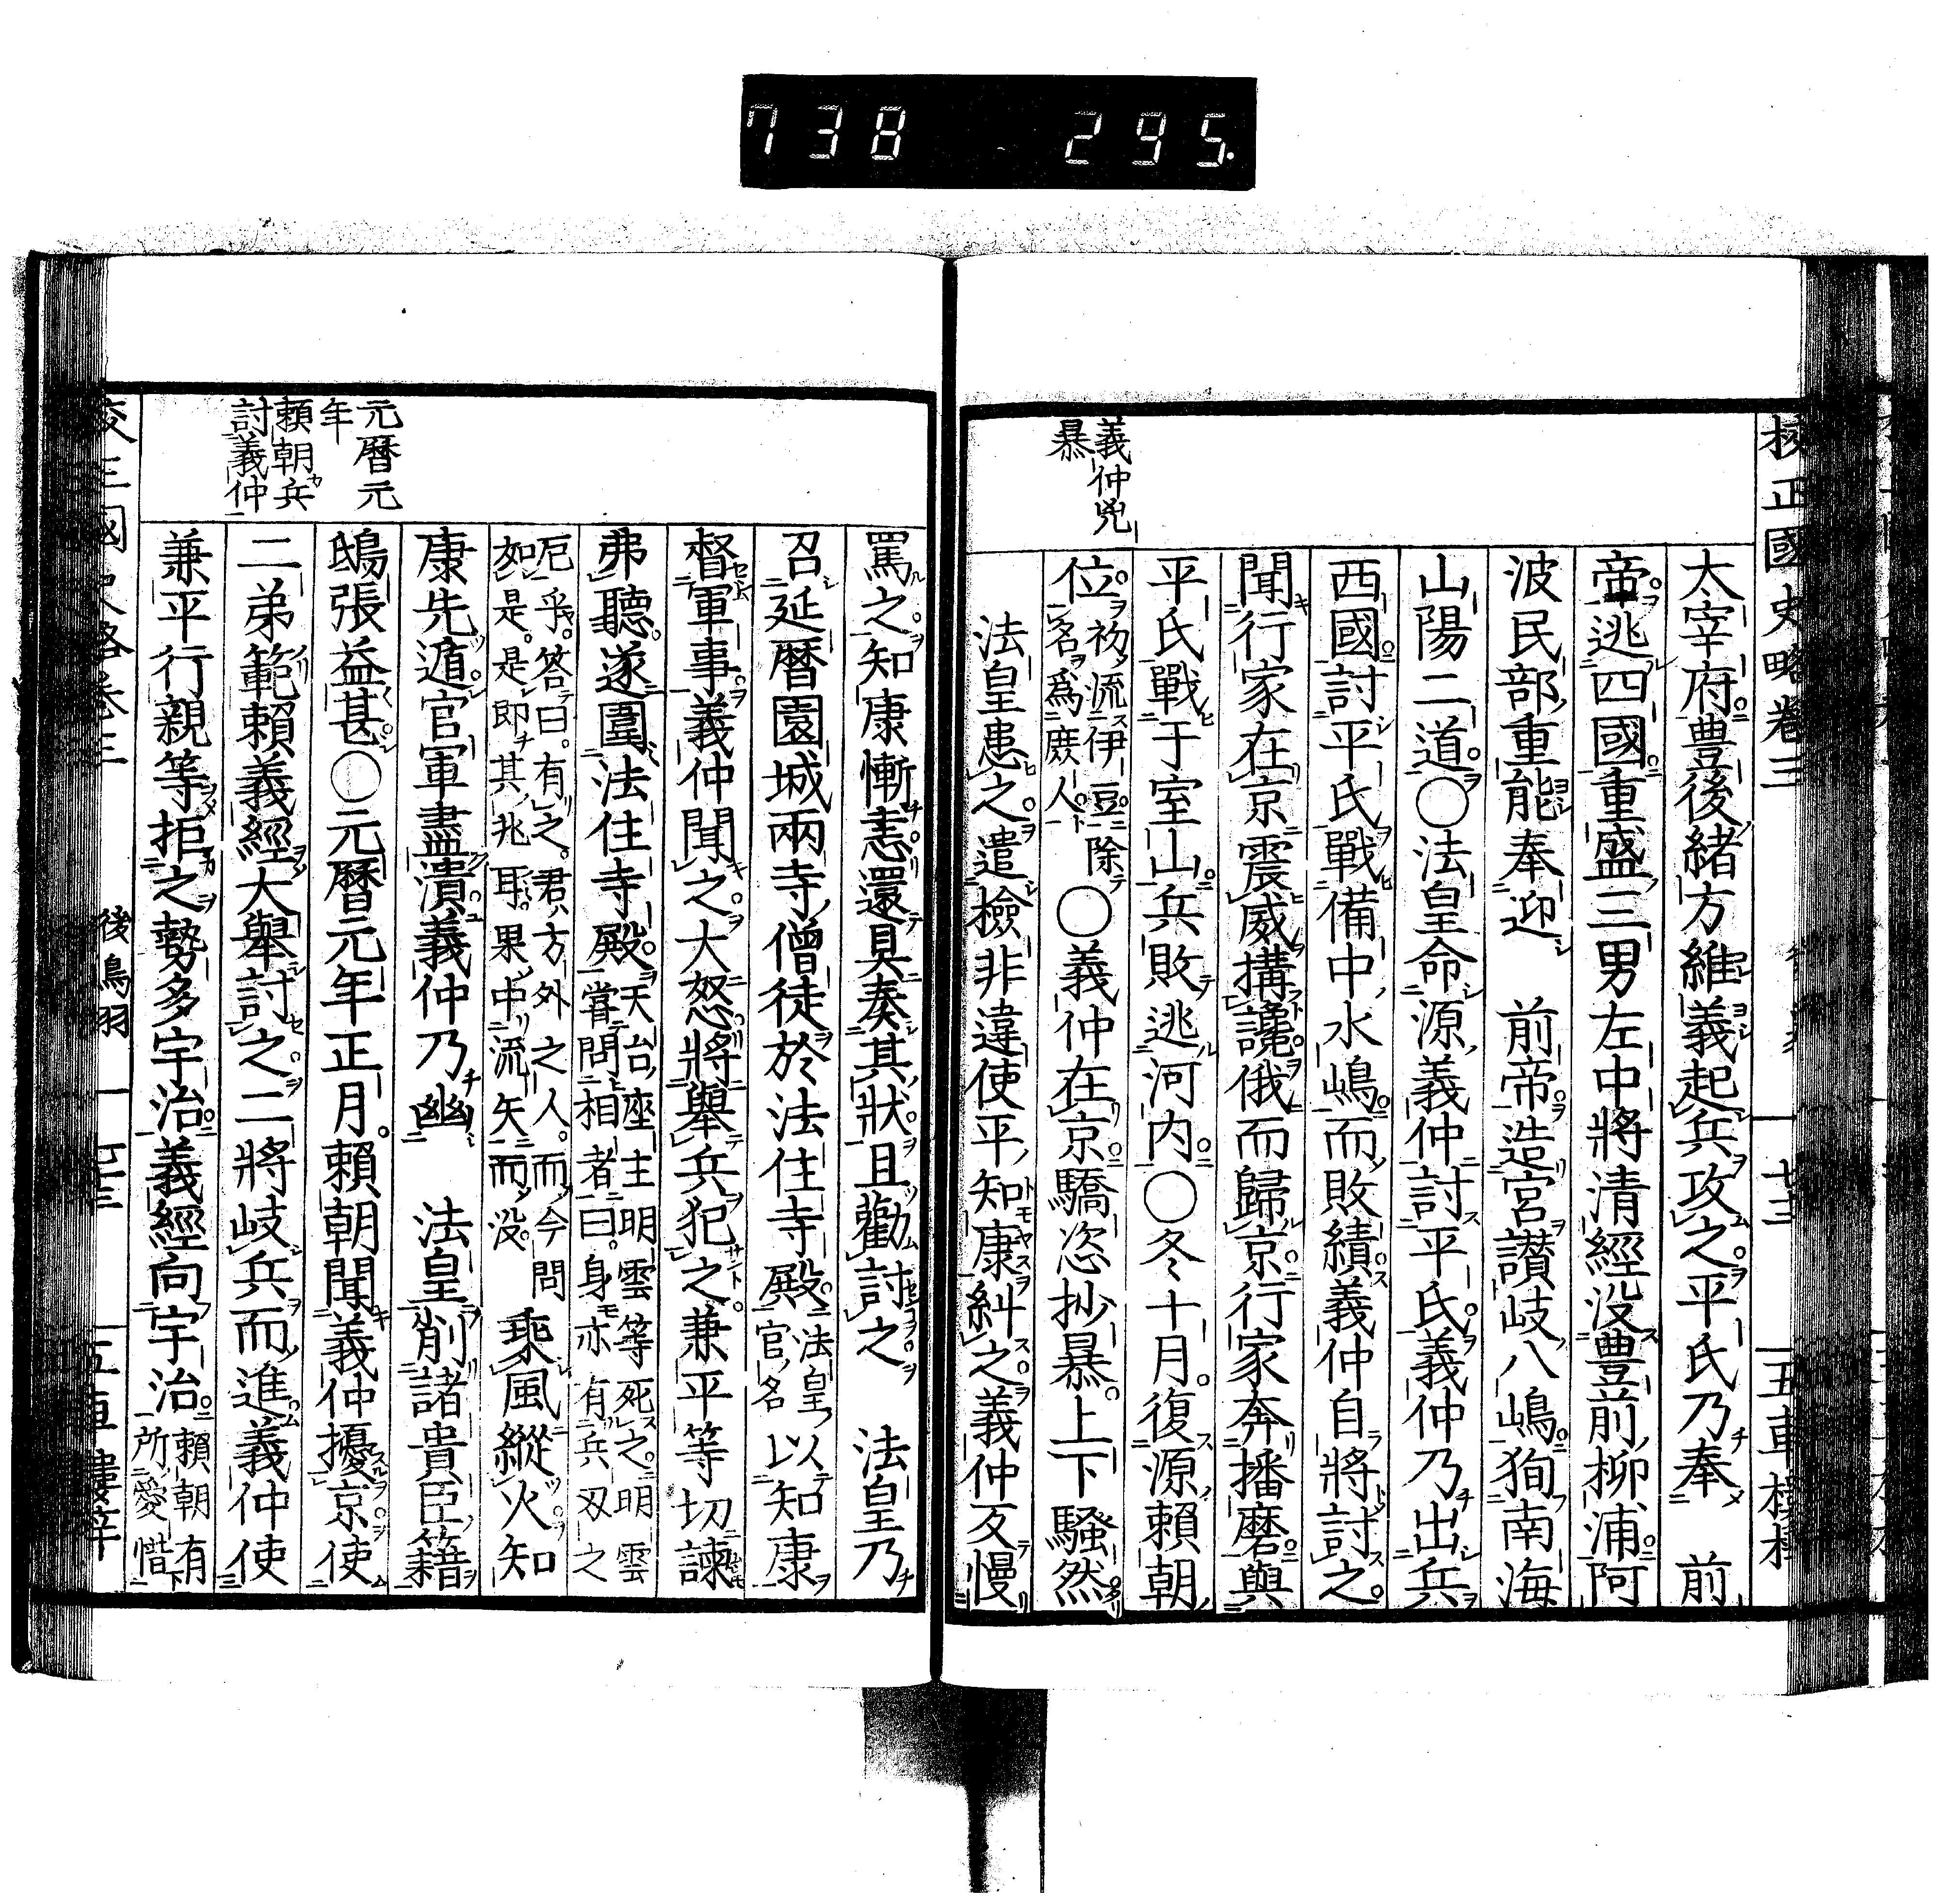 738 295.
校正國史略卷三
太宰府豊後緒方維義起兵攻之平氏乃奉 前
帝逃四國重盛三男左中將清經没豊前柳浦阿
波民部重能奉迎 前帝造宮讃岐八嶋狥南海
山陽二道〇法皇命源義仲討平氏義仲乃出兵
西國討平氏戰備中水嶋而敗績義仲自將討之
聞行家在京震威搆讒俄而歸京行家奔播磨與
平氏戰于室山兵敗逃河内〇冬十月復源賴朝
位初流伊豆除名爲庶人〇義仲在京驕恣抄暴上下騷然
法皇患之遣撿非違使平知康糾之義仲反慢
義仲兇
暴
罵之知康慚恚還具奏其狀且勸討之 法皇乃
召延曆園城兩寺僧徒於法住寺殿法皇以官名知康
督軍事義仲聞之大怒將舉兵犯之兼平等切諫
弗聽遂圍法住寺殿天台座主明雲等死之明雲嘗問相者曰身亦有兵刄之
厄乎答曰有之君方外之人而今問如是是即其兆耳果中流矢而没乘風縱火知
康先遁官軍盡潰義仲乃幽 法皇削諸貴臣籍
鴟張益甚〇元曆元年正月賴朝聞義仲擾京使
二弟範賴義經大舉討之二將岐兵而進義仲使
兼平行親等拒之勢多宇治義經向宇治賴朝有所愛惜
元曆元
年
賴朝兵
討義仲
後鳥羽